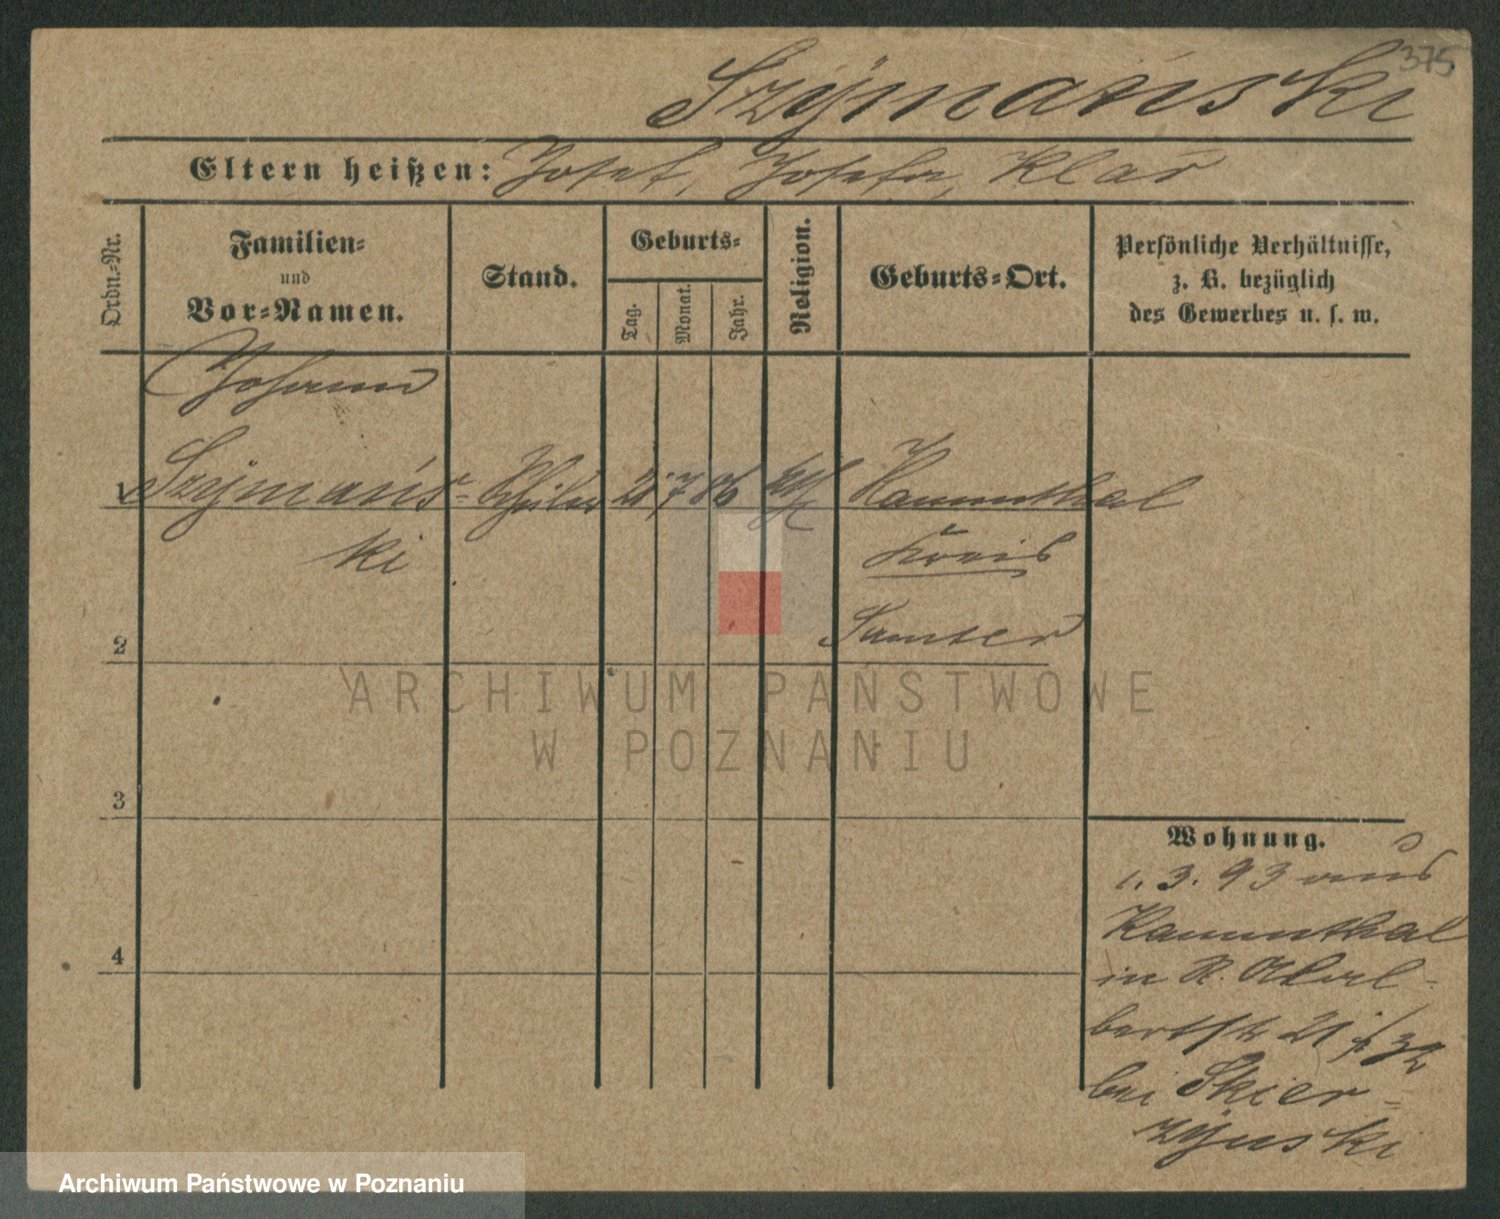 375
Szymański
Eltern heißen: Josef, Josefa, Klar
Ordn.-Nr.
Familien-
und
Vor-Namen.
Stand.
Geburts-
Tag.
Monat.
Jahr.
Religion.
Geburts-Ort.
Persönliche Verhältnisse,
z. B. bezüglich
des Gewerbes u. s. w.
Johann
1 Szymańs- Schüler 21 7 86 kath Kammthal
ki Kreis
Samter
2
3
4
Wohnung.
1. 3. 93 aus
Kammthal
in
bertstr 21
bei Skier-
zynski
ARCHIWUM PAŃSTWOWE
W POZNANIU
Archiwum Państwowe w Poznaniu